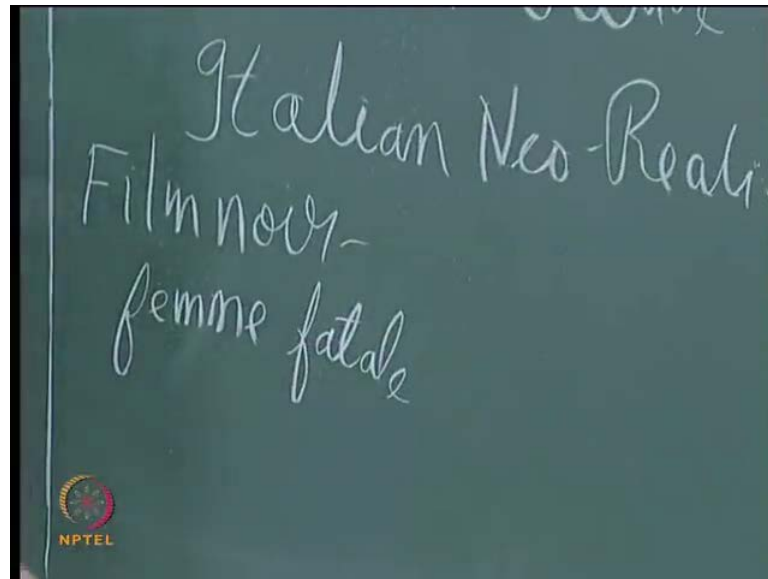 Italian Neo-Reali
Film noir-
femme fatale
NPTEL